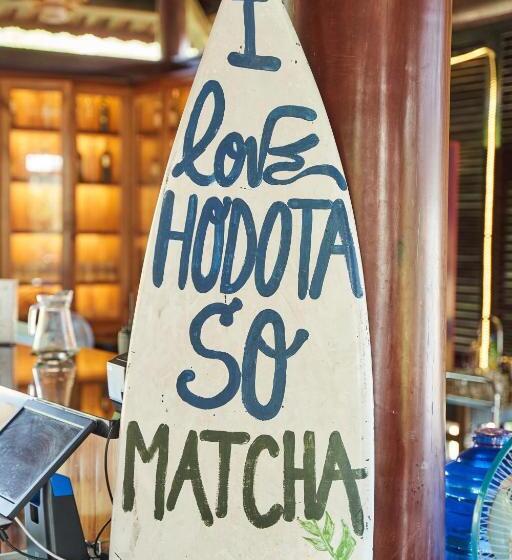 I
love
HODOTA
SO
MATCHA